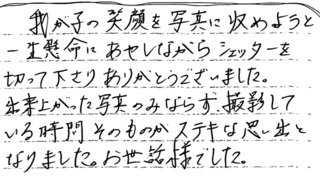 我が子の笑顔を写真に収めようと
一生懸命にあやしながらシェッターを
切って下さりありがとうございました。
出来上がった写真のみならず、撮影して
いる時間そのものがステキな思い出と
なりました。お世話様でした。